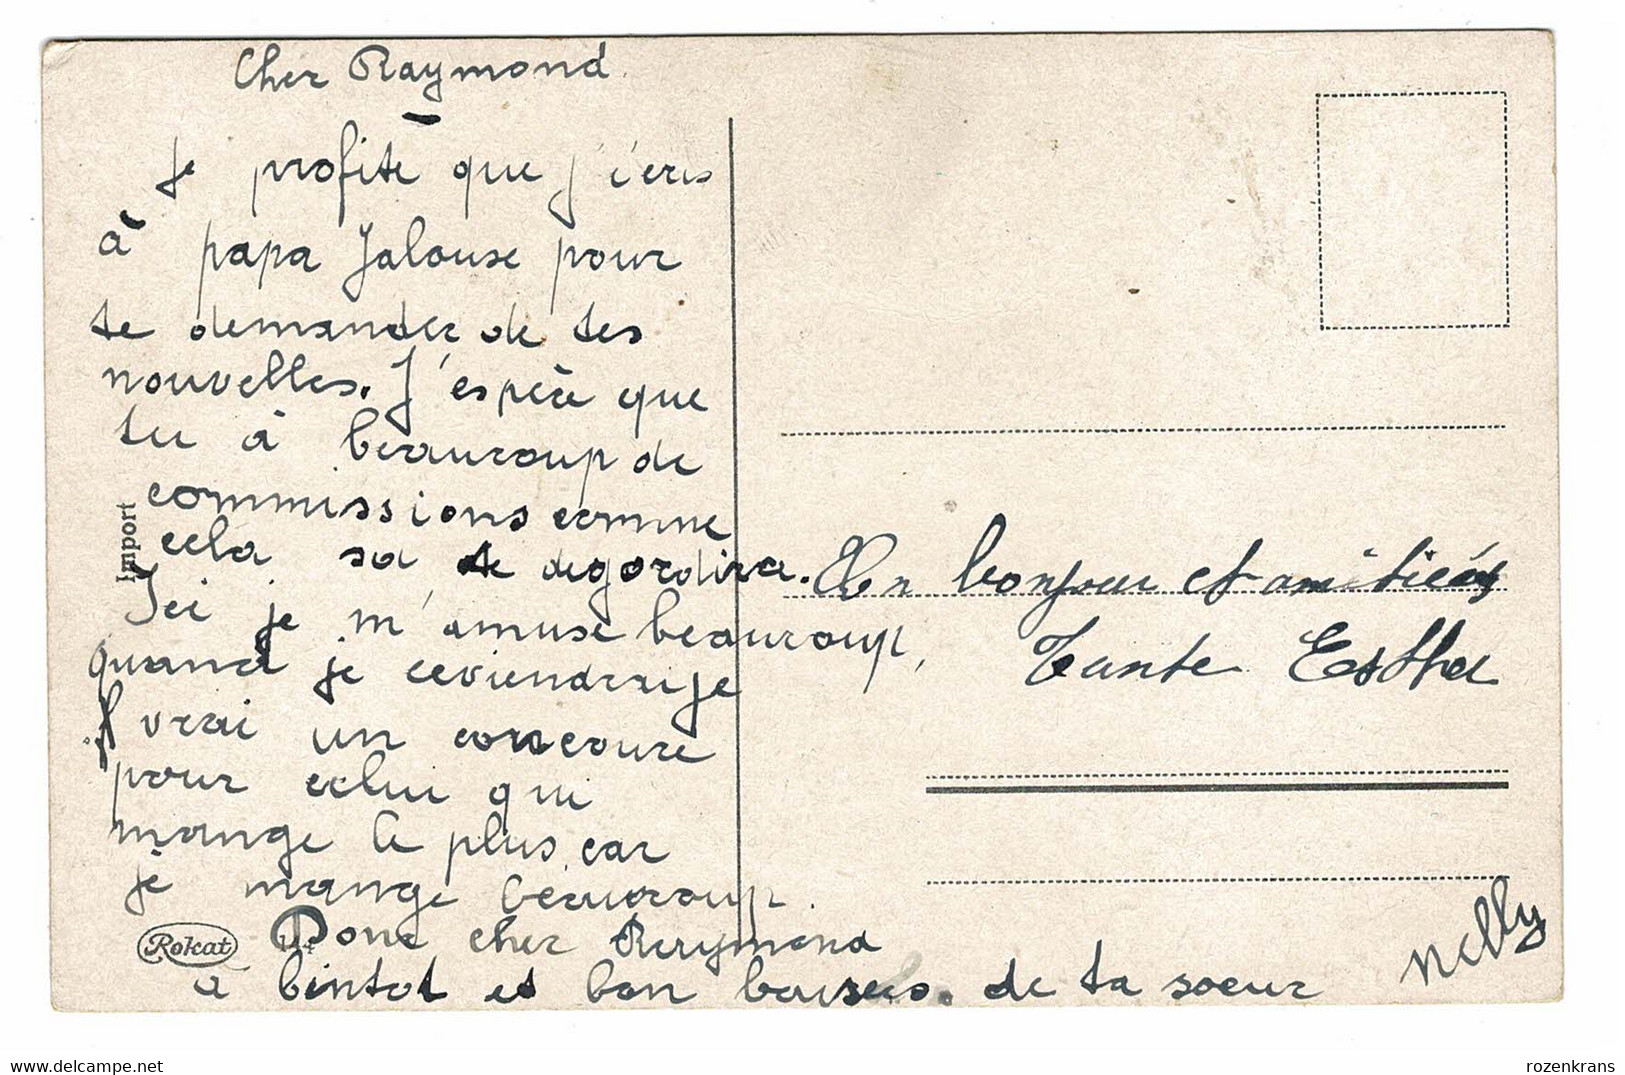 Cher Raymond
Je profite que j'iers
à papa Jalouse pour
te demander de tes
nouvelles. J'espère que
tu à beaucoup de
commissions comme
cela sa te degordira.
Ici je m'amuse beaucoup,
quand je reviendrai je
vrai un concoure
pour celui qui
mange le plus car
je mange beaucoup.
Donc cher Raymond
a bintot et bon baisers. de ta soeur Nelly
Un bonjour et amitiés
Tante Esther
Import
Rokat
rozenkrans